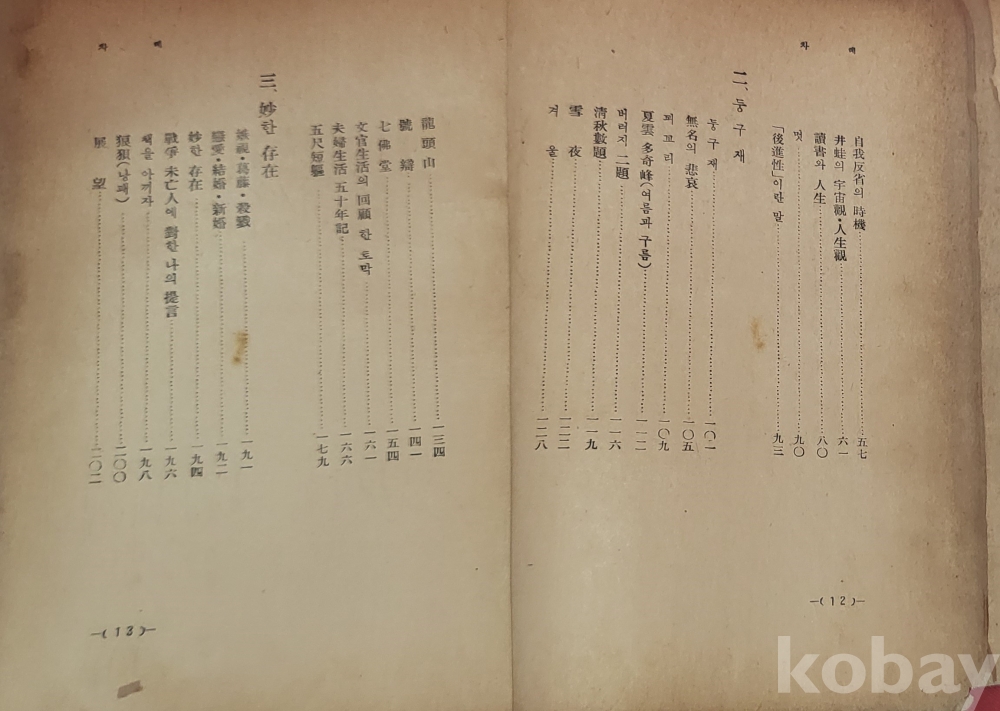 차 례
自我反省의 時機 五七
井蛙의 宇宙觀・人生觀 六一
讀書와 人生 八〇
멋 九〇
「後進性」이란 말 九三
二、둥구재
둥구재 一〇一
無名의 悲哀 一〇五
꾀꼬리 一〇九
夏雲多奇峰(여름과 구름) 一一二
버러지 二題 一一六
淸秋數題 一一九
雪 夜 一二二
겨 울 一二八
—(12)—
차 례
龍頭山 一三四
號 辯 一四一
七佛堂 一五四
文官生活의 回顧 한 토막 一六一
夫婦生活 五十年記 一六六
五尺短軀 一七九
三、妙한 存在
嫉視・葛藤・殺戮 一九一
戀愛・結婚・新婚 一九二
妙한 存在 一九四
戰爭未亡人에 對한 나의 提言 一九六
책을 아끼자 一九八
狼狽(낭패) 二〇〇
展 望 二〇二
—(13)—
kobay